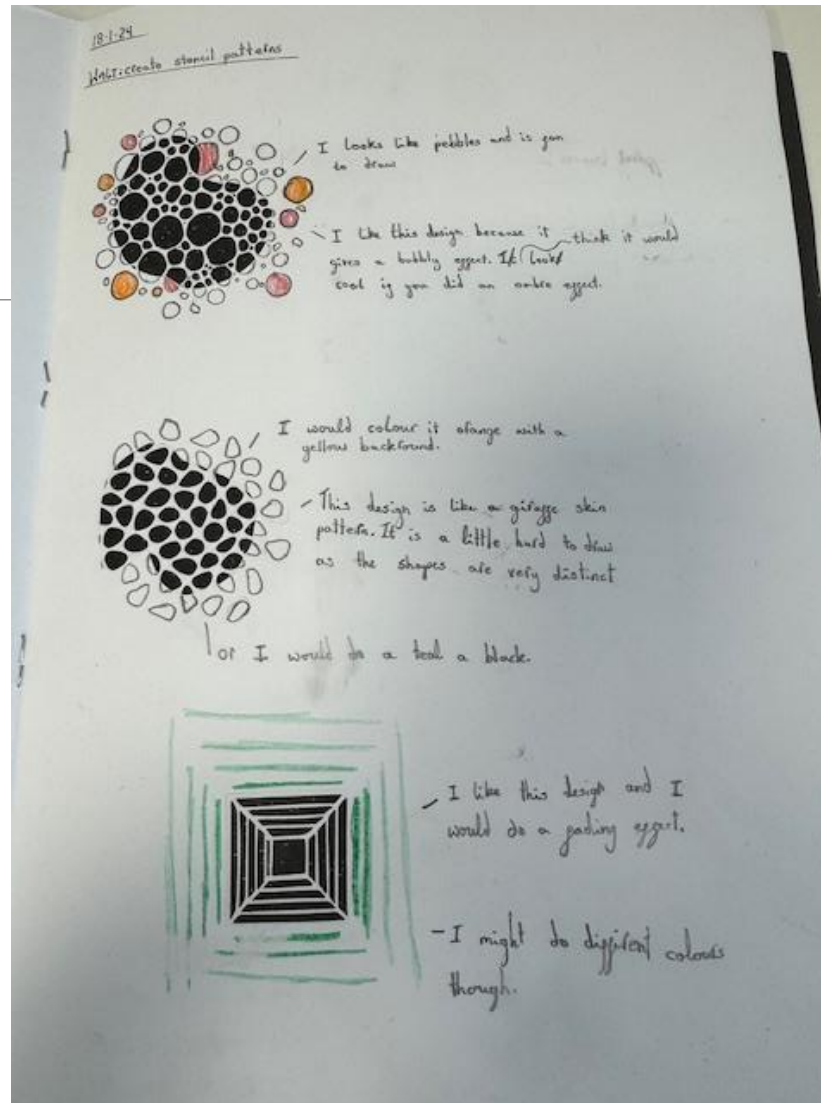 18-1-24
WALT: create stencil patterns
I looks like pebbles and is fun
to draw
I like this design because it think it would
gives a bubbly effect. It look
cool if you did an ombre effect.
I would colour it orange with a
yellow backround.
This design is like a giraffe skin
pattern. It is a little hard to draw
as the shapes are very distinct
or I would do a teal a black.
I like this design and I
would do a fading effect.
- I might do diffirent colours
though.